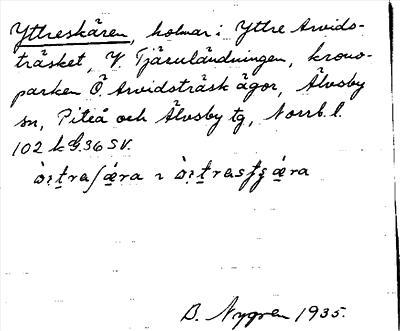 Yttreskären, holmar i Yttre Arvids-
träsket, V. Tjäruländningen, krono-
parken Ö. Arvidsträsk ägor, Älvsby
sn, Piteå och Älvsby tg, Norrb. l.
102 k G.36 SV.
B. Nygren 1935.